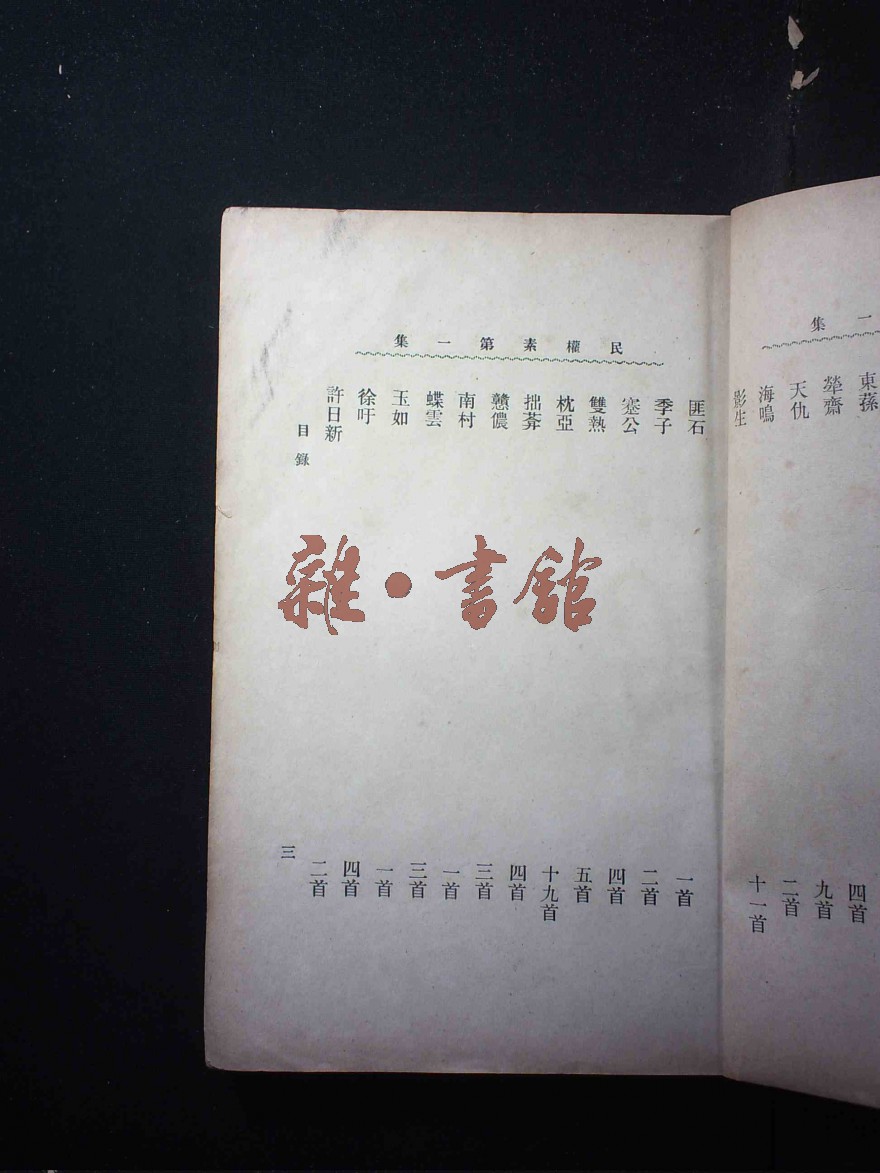 一集
東蓀 四首
犖齋 九首
天仇 二首
海鳴 十一首
影生
民權素第一集
匪石 一首
季子 二首
塞公 四首
雙熱 五首
枕亞 十九首
拙葊 四首
戇儂 三首
南村 一首
蝶雲 三首
玉如 一首
徐吁 四首
許日新 二首
目錄 三
雜·書館